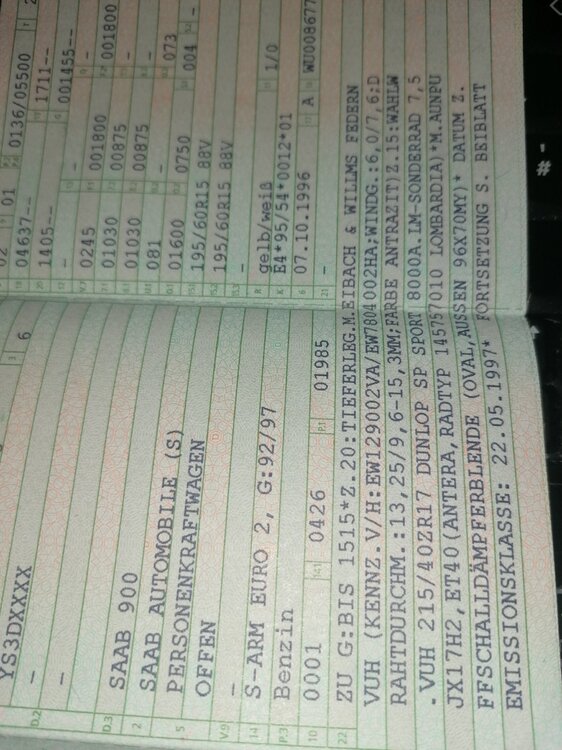 YS3DXXXX 3 6
D.2 -
-
D.3 SAAB 900
2 SAAB AUTOMOBILE (S)
5 PERSONENKRAFTWAGEN
OFFEN
V.9 -
14 S-ARM EURO 2, G:92/97
P.3 Benzin
10 0001 14.1 0426 P.1 01985
02 9 01
18 04637-- 0136/05500 T 2
20 1405-- 1711--
12 - 13 - 001455--
V.7 0245 - -
7.1 01030 001800 001800
8.1 01030 00875 -
U.1 081 00875 -
O.1 01600 0750 073
15.1 195/60R15 88V 004 S.2 -
15.2 195/60R15 88V
15.3 -
R gelb/weiß 11 1/0
K E4*95/54*0012*01
6 07.10.1996 17 A 16 WU008677
21 -
22 ZU G:BIS 1515*Z.20:TIEFERLEG.M.EIBACH & WILLMS FEDERN
VUH (KENNZ.V/H:EW129002VA/EW7804002HA;WINDG.:6,0/7,6;D
RAHTDURCHM.:13,25/9,6-15,3MM;FARBE ANTRAZIT)Z.15:WAHLW
. VUH 215/40ZR17 DUNLOP SP SPORT 8000A.LM-SONDERRAD 7,5
JX17H2,ET40(ANTERA,RADTYP 145757010 LOMBARDIA)*M.AUNPU
FFSCHALLDÄMPFERBLENDE (OVAL,AUSSEN 96X70MY)* DATUM Z.
EMISSIONSKLASSE: 22.05.1997* FORTSETZUNG S. BEIBLATT